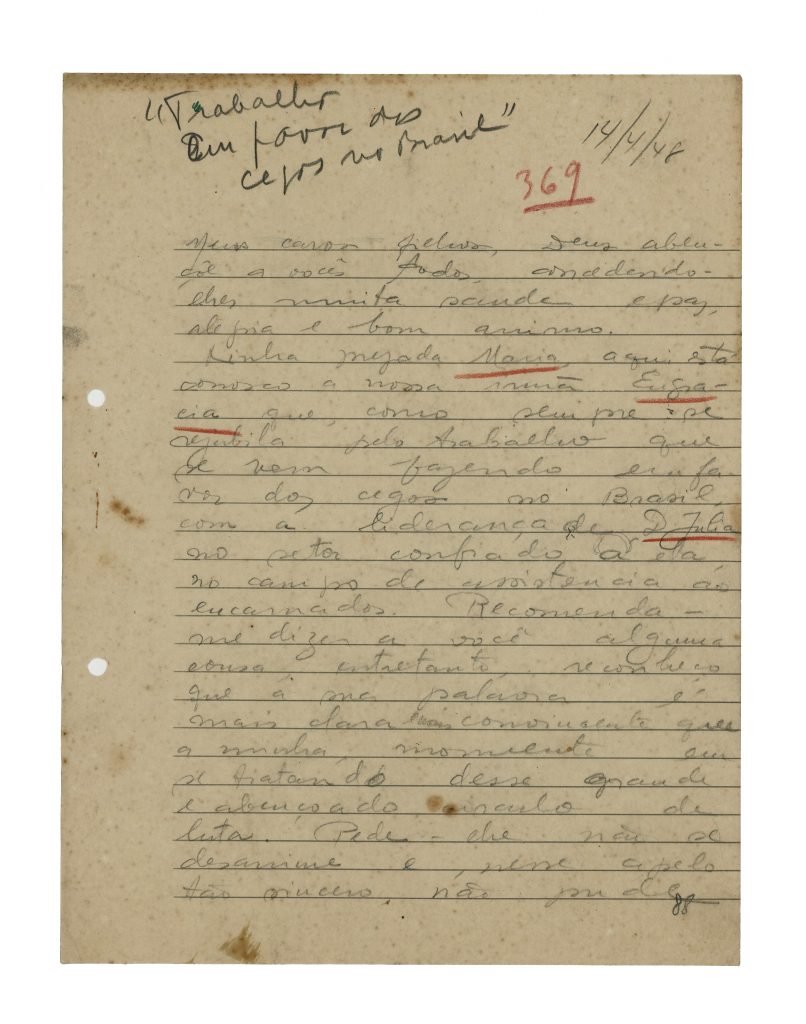 "Trabalho
Em favor dos
cegos no Brasil"
14/4/48
369
Meus caros filhos, Deus aben-
çõe a vocês todos, concedendo-
lhes muita saude e paz,
alegria e bom animo.
Minha prezada Maria, aqui está
conosco a nossa irmã Engra-
cia que, como sempre se
rejubila pelo trabalho que
se vem fazendo em fa
vor dos cegos no Brasil,
com a liderança de D. Julia
no setor confiado a ela
no campo de assistencia ao
encarnados. Recomenda-
me dizer a você alguma
cousa, entretanto, reconheço
que a sua palavra é
mais clara e mais convincente que
a minha, mormente em
se tratando desse grande
e abençoado circulo de
luta. Pede-lhe não se
desanime e, nesse apelo
tão sincero não pude
88